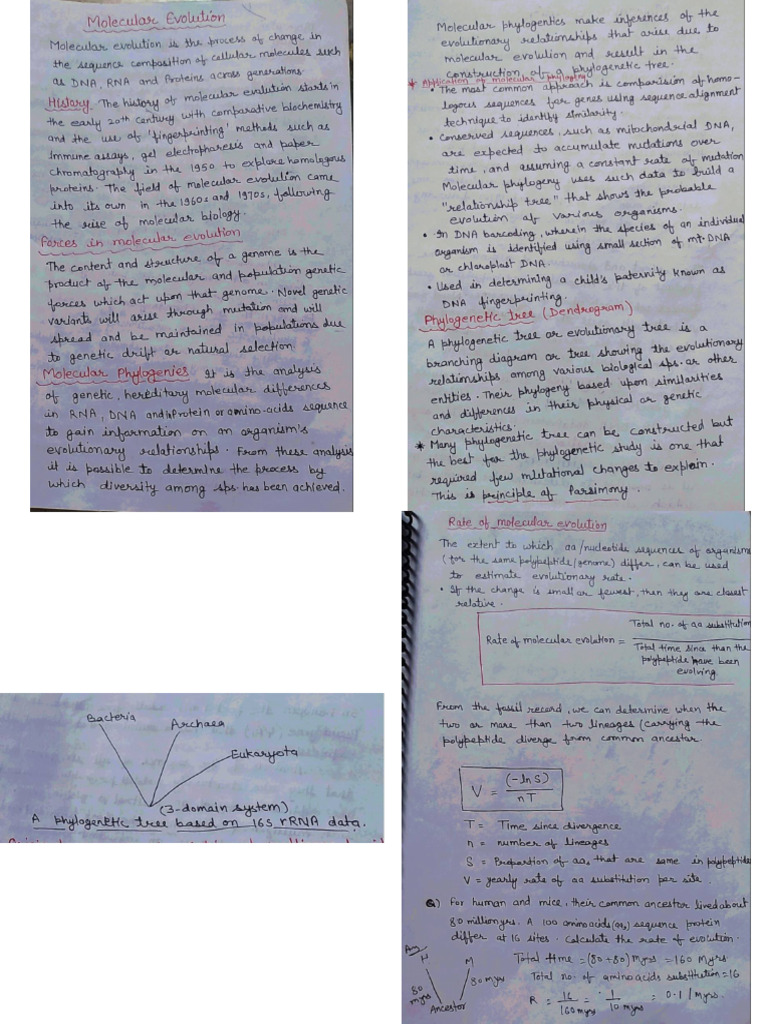 Molecular Evolution
Molecular evolution is the process of change in
the sequence composition of cellular molecules such
as DNA, RNA and Proteins across generations.
History The history of molecular evolution starts in
the early 20th century with comparative biochemistry
and the use of 'fingerprinting' methods such as
Immune assays, gel electrophoresis and paper
chromatography in the 1950 to explore homologous
proteins. The field of molecular evolution came
into its own in the 1960s and 1970s, following
the rise of molecular biology.
Forces in molecular evolution
The content and structure of a genome is the
product of the molecular and population genetic
forces which act upon that genome. Novel genetic
variants will arise through mutation and will
spread and be maintained in populations due
to genetic drift or natural selection
Molecular Phylogenies It is the analysis
of genetic, hereditary molecular differences
in RNA, DNA and Protein or amino-acids sequence
to gain information on an organism's
evolutionary relationships. From these analysis
it is possible to determine the process by
which diversity among sps. has been achieved.
Molecular phylogentics make inferences of the
evolutionary relationships that arise due to
molecular evolution and result in the
construction of a phylogenetic tree.
* Application of molecular phylogeny
• The most common approach is comparision of homo-
logous sequences for genes using sequence alignment
technique to identify similarity.
• Conserved sequences, such as mitochondrial DNA,
are expected to accumulate mutations over
time, and assuming a constant rate of mutation
Molecular phylogeny uses such data to build a
"relationship tree" that shows the probable
evolution of various organisms.
• In DNA barcoding, wherein the species of an individual
organism is identified using small section of mt-DNA
or chloroplast DNA.
• Used in determining a child's paternity known as
DNA fingerprinting.
Phylogenetic tree (Dendrogram)
A phylogenetic tree or evolutionary tree is a
branching diagram or tree showing the evolutionary
relationships among various biological sps. or other
entities. Their phylogeny based upon similarities
and differences in their physical or genetic
characteristics.
* Many phylogenetic tree can be constructed but
the best for the phylogenetic study is one that
required few mutational changes to explain.
This is principle of Parsimony.
Bacteria
Archaea
Eukaryota
(3-domain system)
A phylogenetic tree based on 16S rRNA data.
Rate of molecular evolution
The extent to which aa/nucleotide sequences of organisms
(for the same polypeptide/genome) differ, can be used
to estimate evolutionary rate.
• If the change is small or fewest, then they are closest
relative.
Rate of molecular evolution = Total no. of aa substitution
Total time since than the
polypeptide have been
evolving
From the fossil record, we can determine when the
two or more than two lineages (carrying the
polypeptide diverge from common ancestor.
V = (-ln S)
nT
T = Time since divergence
n = number of lineages
S = Proportion of aas that are same in polypeptide
V = yearly rate of aa substitution per site.
Q) For human and mice, their common ancestor lived about
80 million yrs. A 100 amino acids (aa) sequence protein
differ at 16 sites. Calculate the rate of evolution.
Ans
H M
80 myrs
80 myrs
Ancestor
Total time = (80+80) Myrs = 160 Myrs
Total no. of amino acids substitution = 16
R = 16/160 myrs = 1/10 myrs = 0.1 / Myrs.